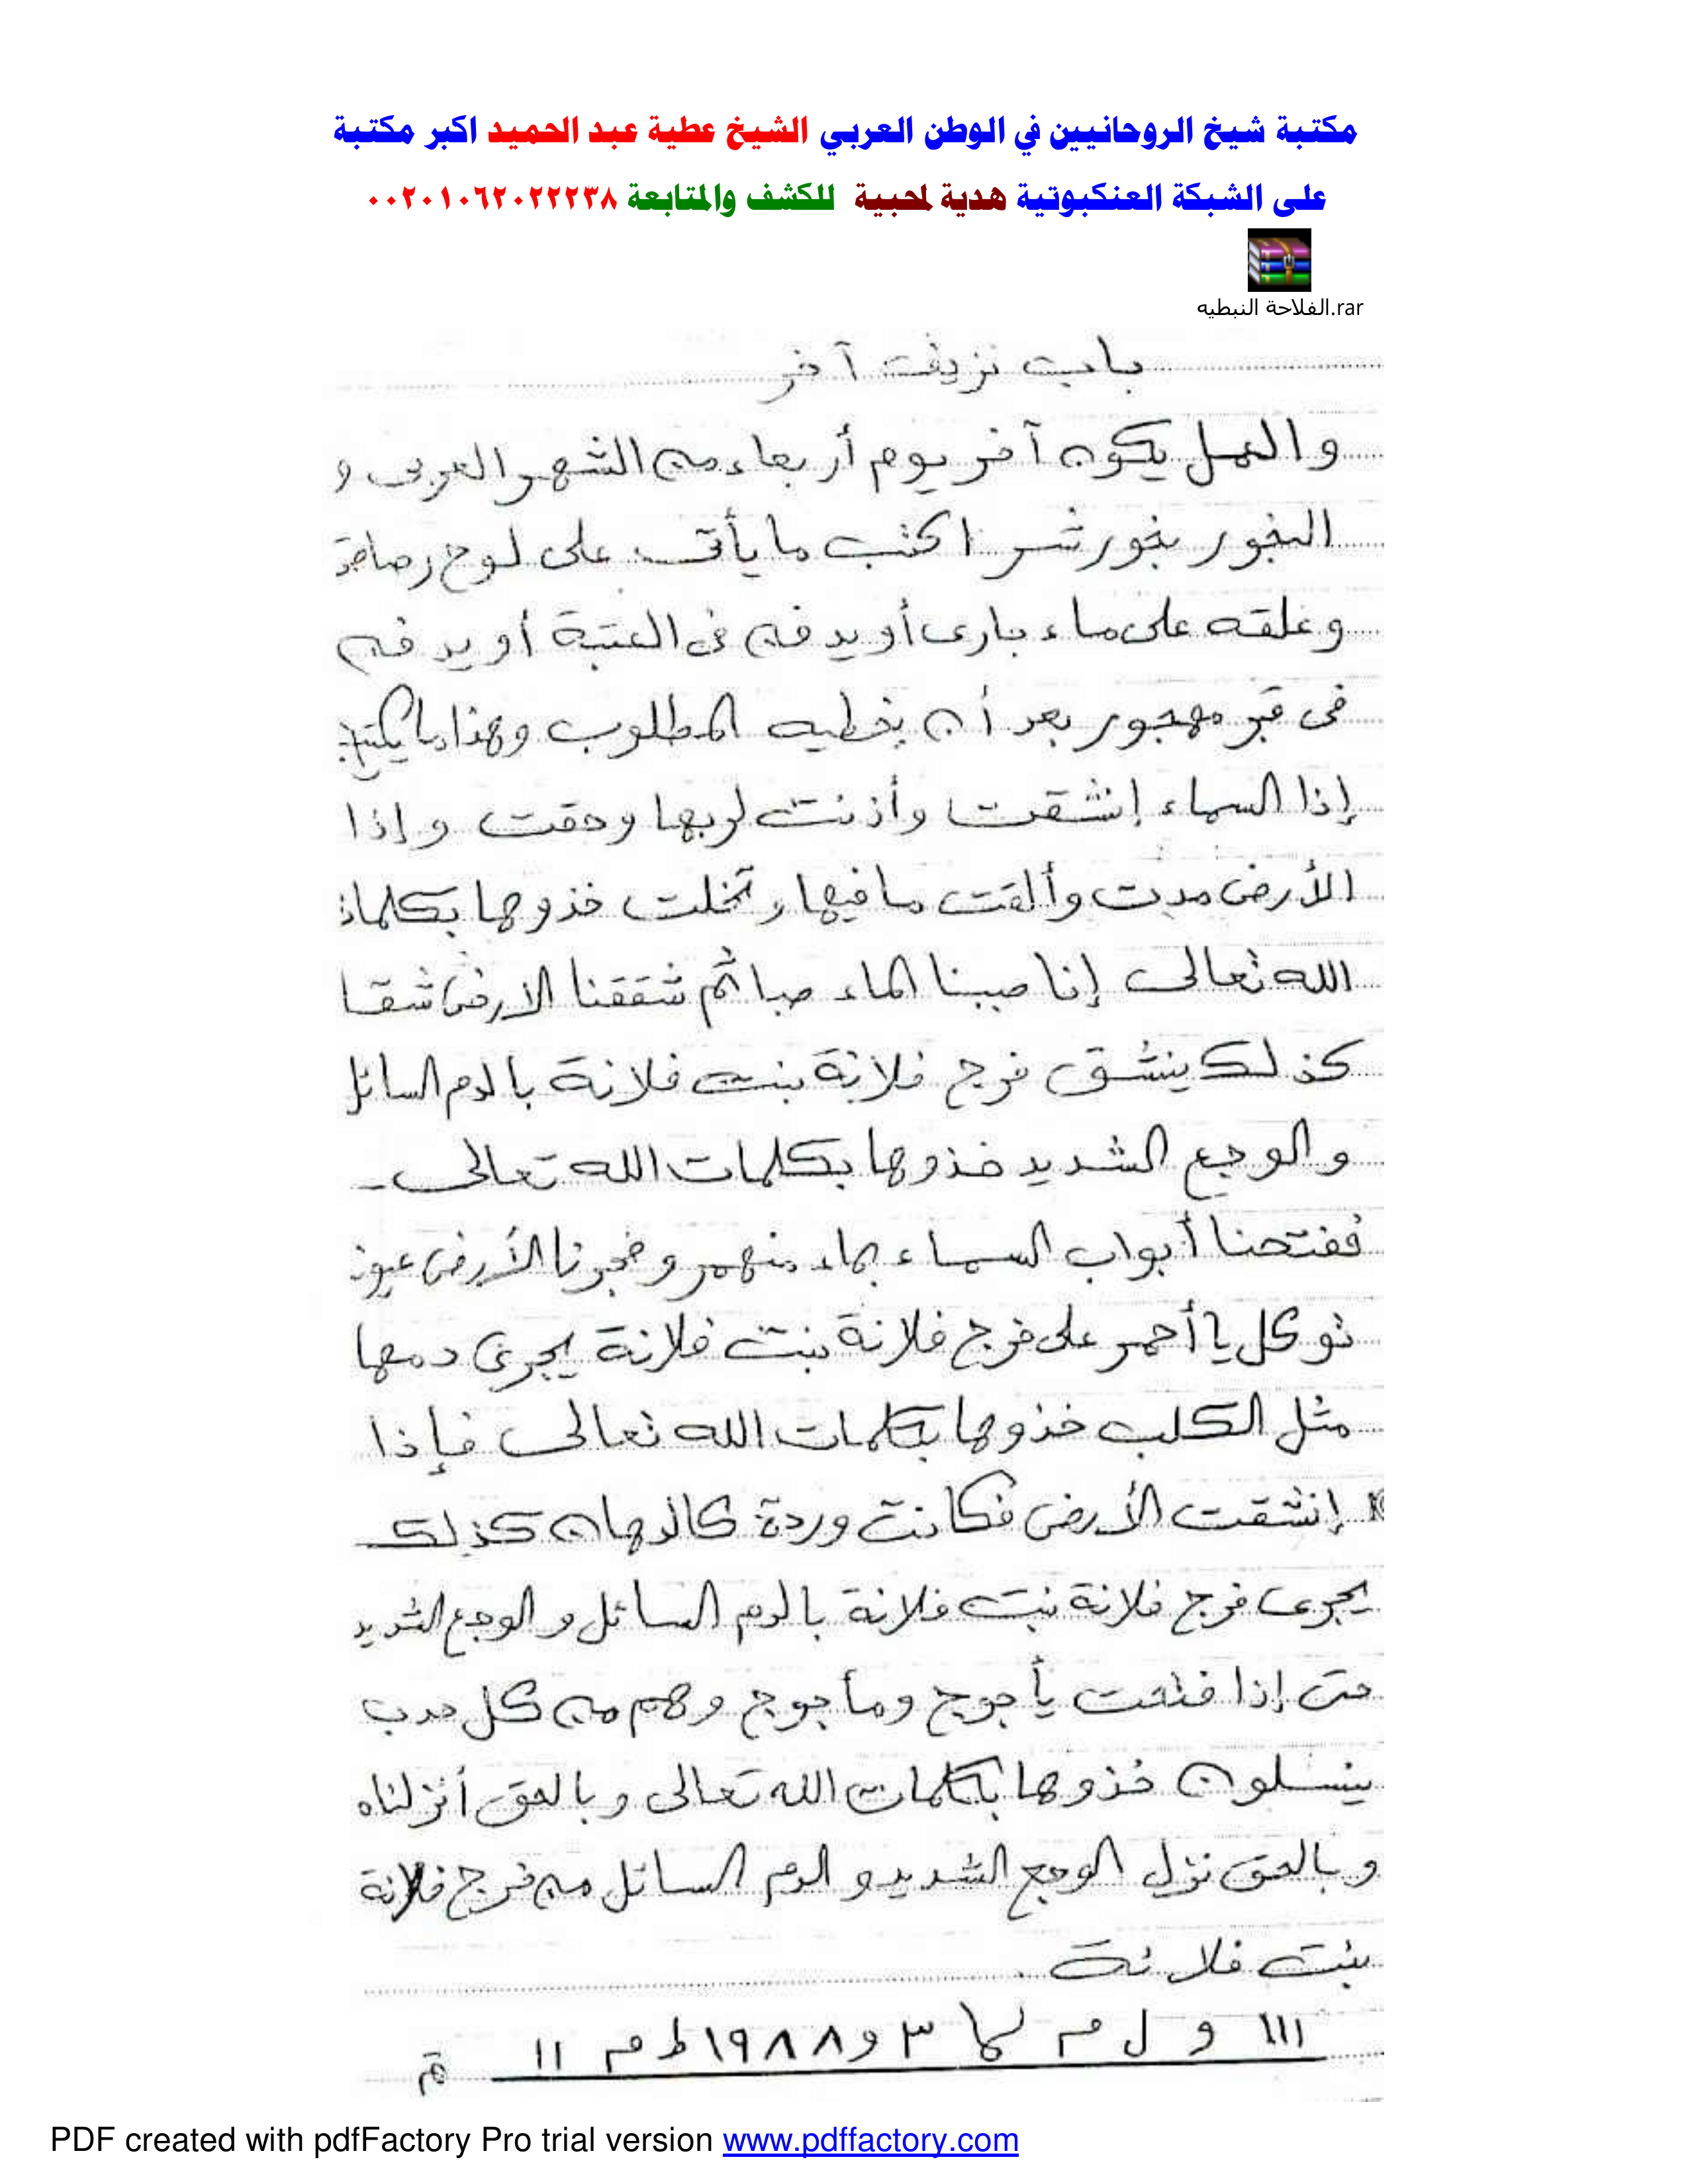 مكتبة شيخ الروحانيين في الوطن العربي الشيخ عطية عبد الحميد اكبر مكتبة
على الشبكة العنكبوتية هدية لمحبية للكشف والمتابعة ٠٠٢٠١٠٦٢٠٢٢٢٣٨
الفلاحة النبطيه.rar
باب نزيف آخر
والعمل يكون آخر يوم أربعاء من الشهر العربى و
البخور بخور شر اكتب ما يأتى على لوح رصاص
وعلقه على ماء جارى أو يدفن فى العتبة أو يدفن
فى قبر مهجور بعد أن يخطيه المطلوب وهذا ما يكتب
إذا السماء إنشقت وأذنت لربها وحقت وإذا
الأرض مدت وألقت ما فيها وتخلت خذوها بكلمات
الله تعالى إنا صببنا الماء صبا ثم شققنا الارض شقا
كذلك ينشق فرج فلانة بنت فلانة بالدم السائل
والوجع الشديد خذوها بكلمات الله تعالى
ففتحنا أبواب السماء بماء منهمر وفجرنا الأرض عيون
توكل يا أحمر على فرج فلانة بنت فلانة يجرى دمها
مثل الكلب خذوها بكلمات الله تعالى فإذا
إنشقت الأرض فكانت وردة كالدهان كذلك
يجرى فرج فلانة بنت فلانة بالدم السائل والوجع الشديد
حتى إذا فتحت يأجوج ومأجوج وهم من كل حدب
ينسلون خذوها بكلمات الله تعالى وبالحق أنزلناه
وبالحق نزل الوجع الشديد والدم السائل من فرج فلانة
بنت فلانة .
١١١ و ل م لما ٣ و ١٩٨٨ ط م ١١ تم
PDF created with pdfFactory Pro trial version www.pdffactory.com